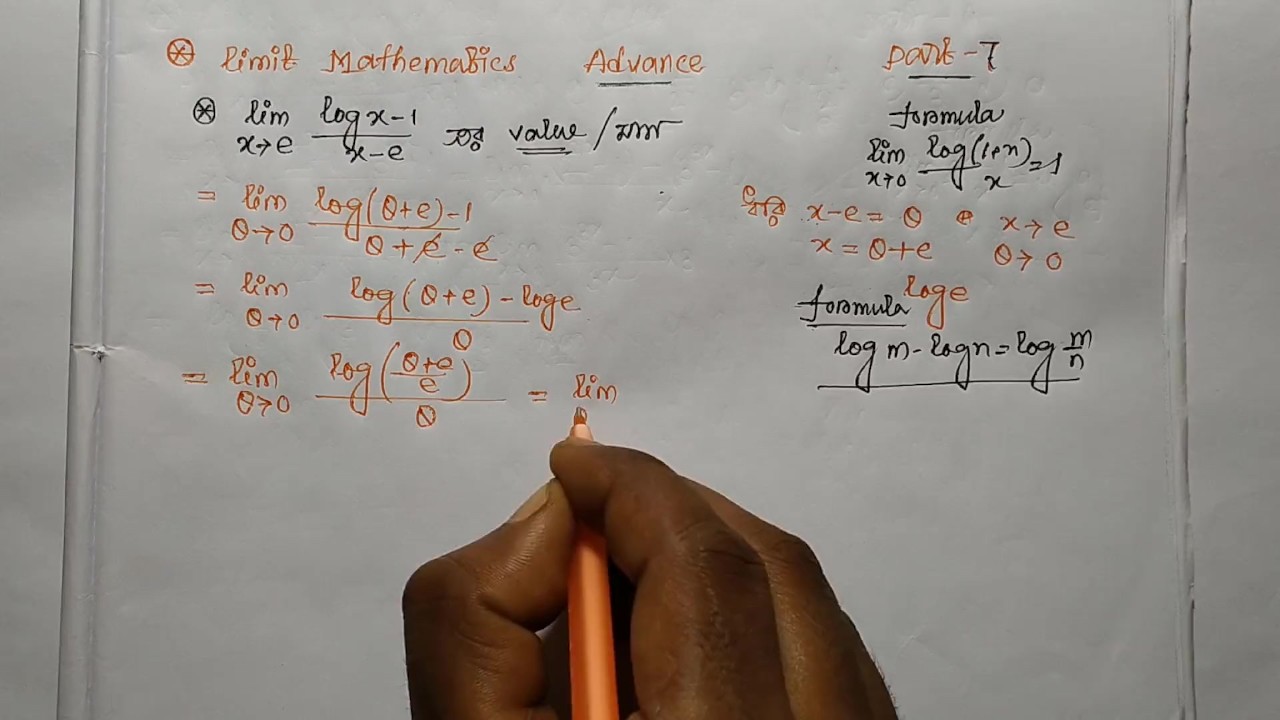 ⊛ Limit Mathematics Advance Part-7
⊛ lim x→e (log x - 1)/(x - e) এর value / মান
= lim θ→0 (log(θ+e) - 1)/(θ + e - e)
= lim θ→0 (log(θ+e) - log e)/θ
= lim θ→0 log((θ+e)/e)/θ = lim θ
formula
lim x→0 log(1+x)/x = 1
ধরি x - e = θ x→e
x = θ + e θ→0
log e
formula
log m - log n = log m/n